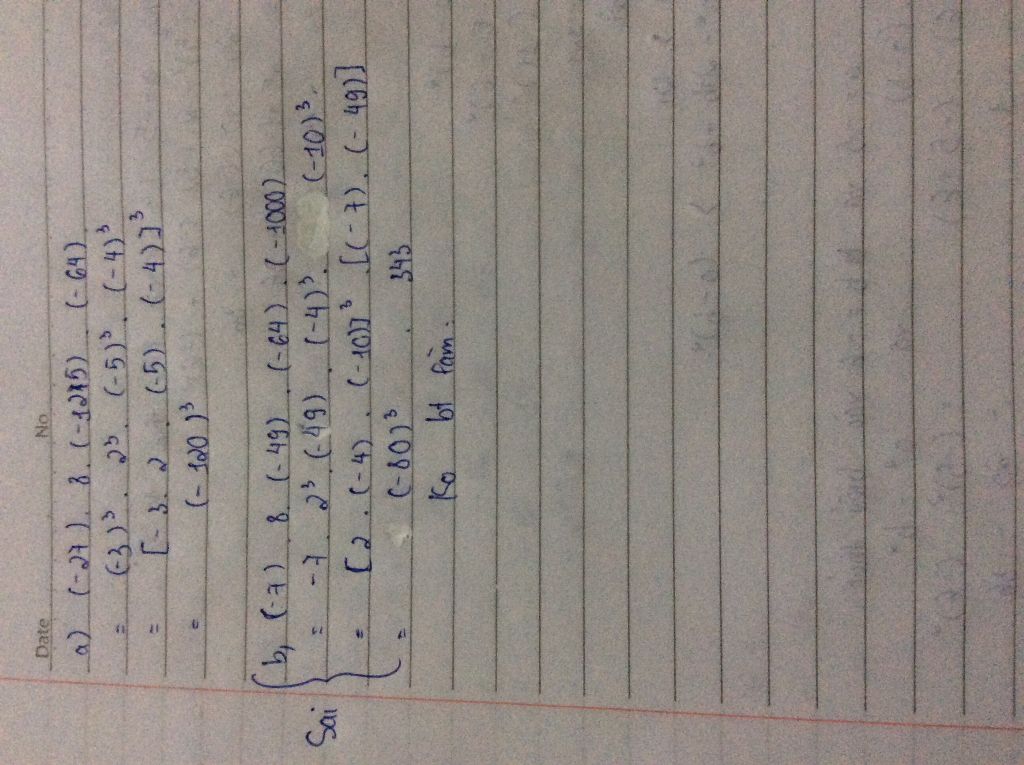 Date No
a) (-27) . 8 . (-125) . (-64)
= (-3)³ . 2³ . (-5)³ . (-4)³
= [-3 . 2 . (-5) . (-4)]³
= (-120)³
b, (-7) . 8 . (-49) . (-64) . (-1000)
= -7 . 2³ . (-49) . (-4)³ . (-10)³.
Sai
= [2 . (-4) . (-10)]³ . [(-7) . (-49)]
= (-80)³ . 343
Ko bt làm.